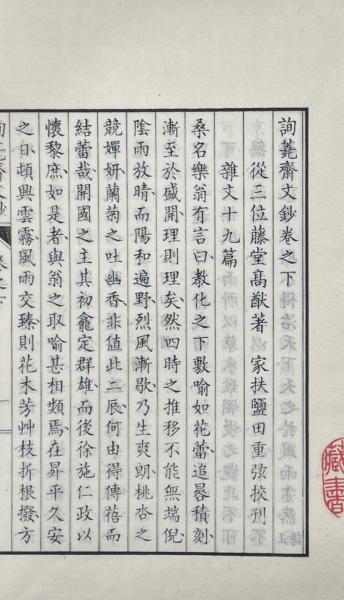 詢蕘齋文鈔卷之下
從三位藤堂高猷著 以家扶鹽田重弦挍刊
雜文十九篇
桑名樂翁有言曰教化之下敷喻如花蕾追晷積刻
漸至於盛開理則理矣然四時之推移不能無端倪
陰雨放晴而陽和遍野烈風漸歇乃生爽朗桃杏之
競嬋妍蘭菊之吐幽香非值此二辰何由得傳蓓而
結蕾哉開國之主其初龕定群雄而後徐施仁政以
懷黎庶如是者與翁之取喻甚相類焉在昇平久安
之日頓興雲霧風雨交臻則花木芳艸枝折根撥方
藏書